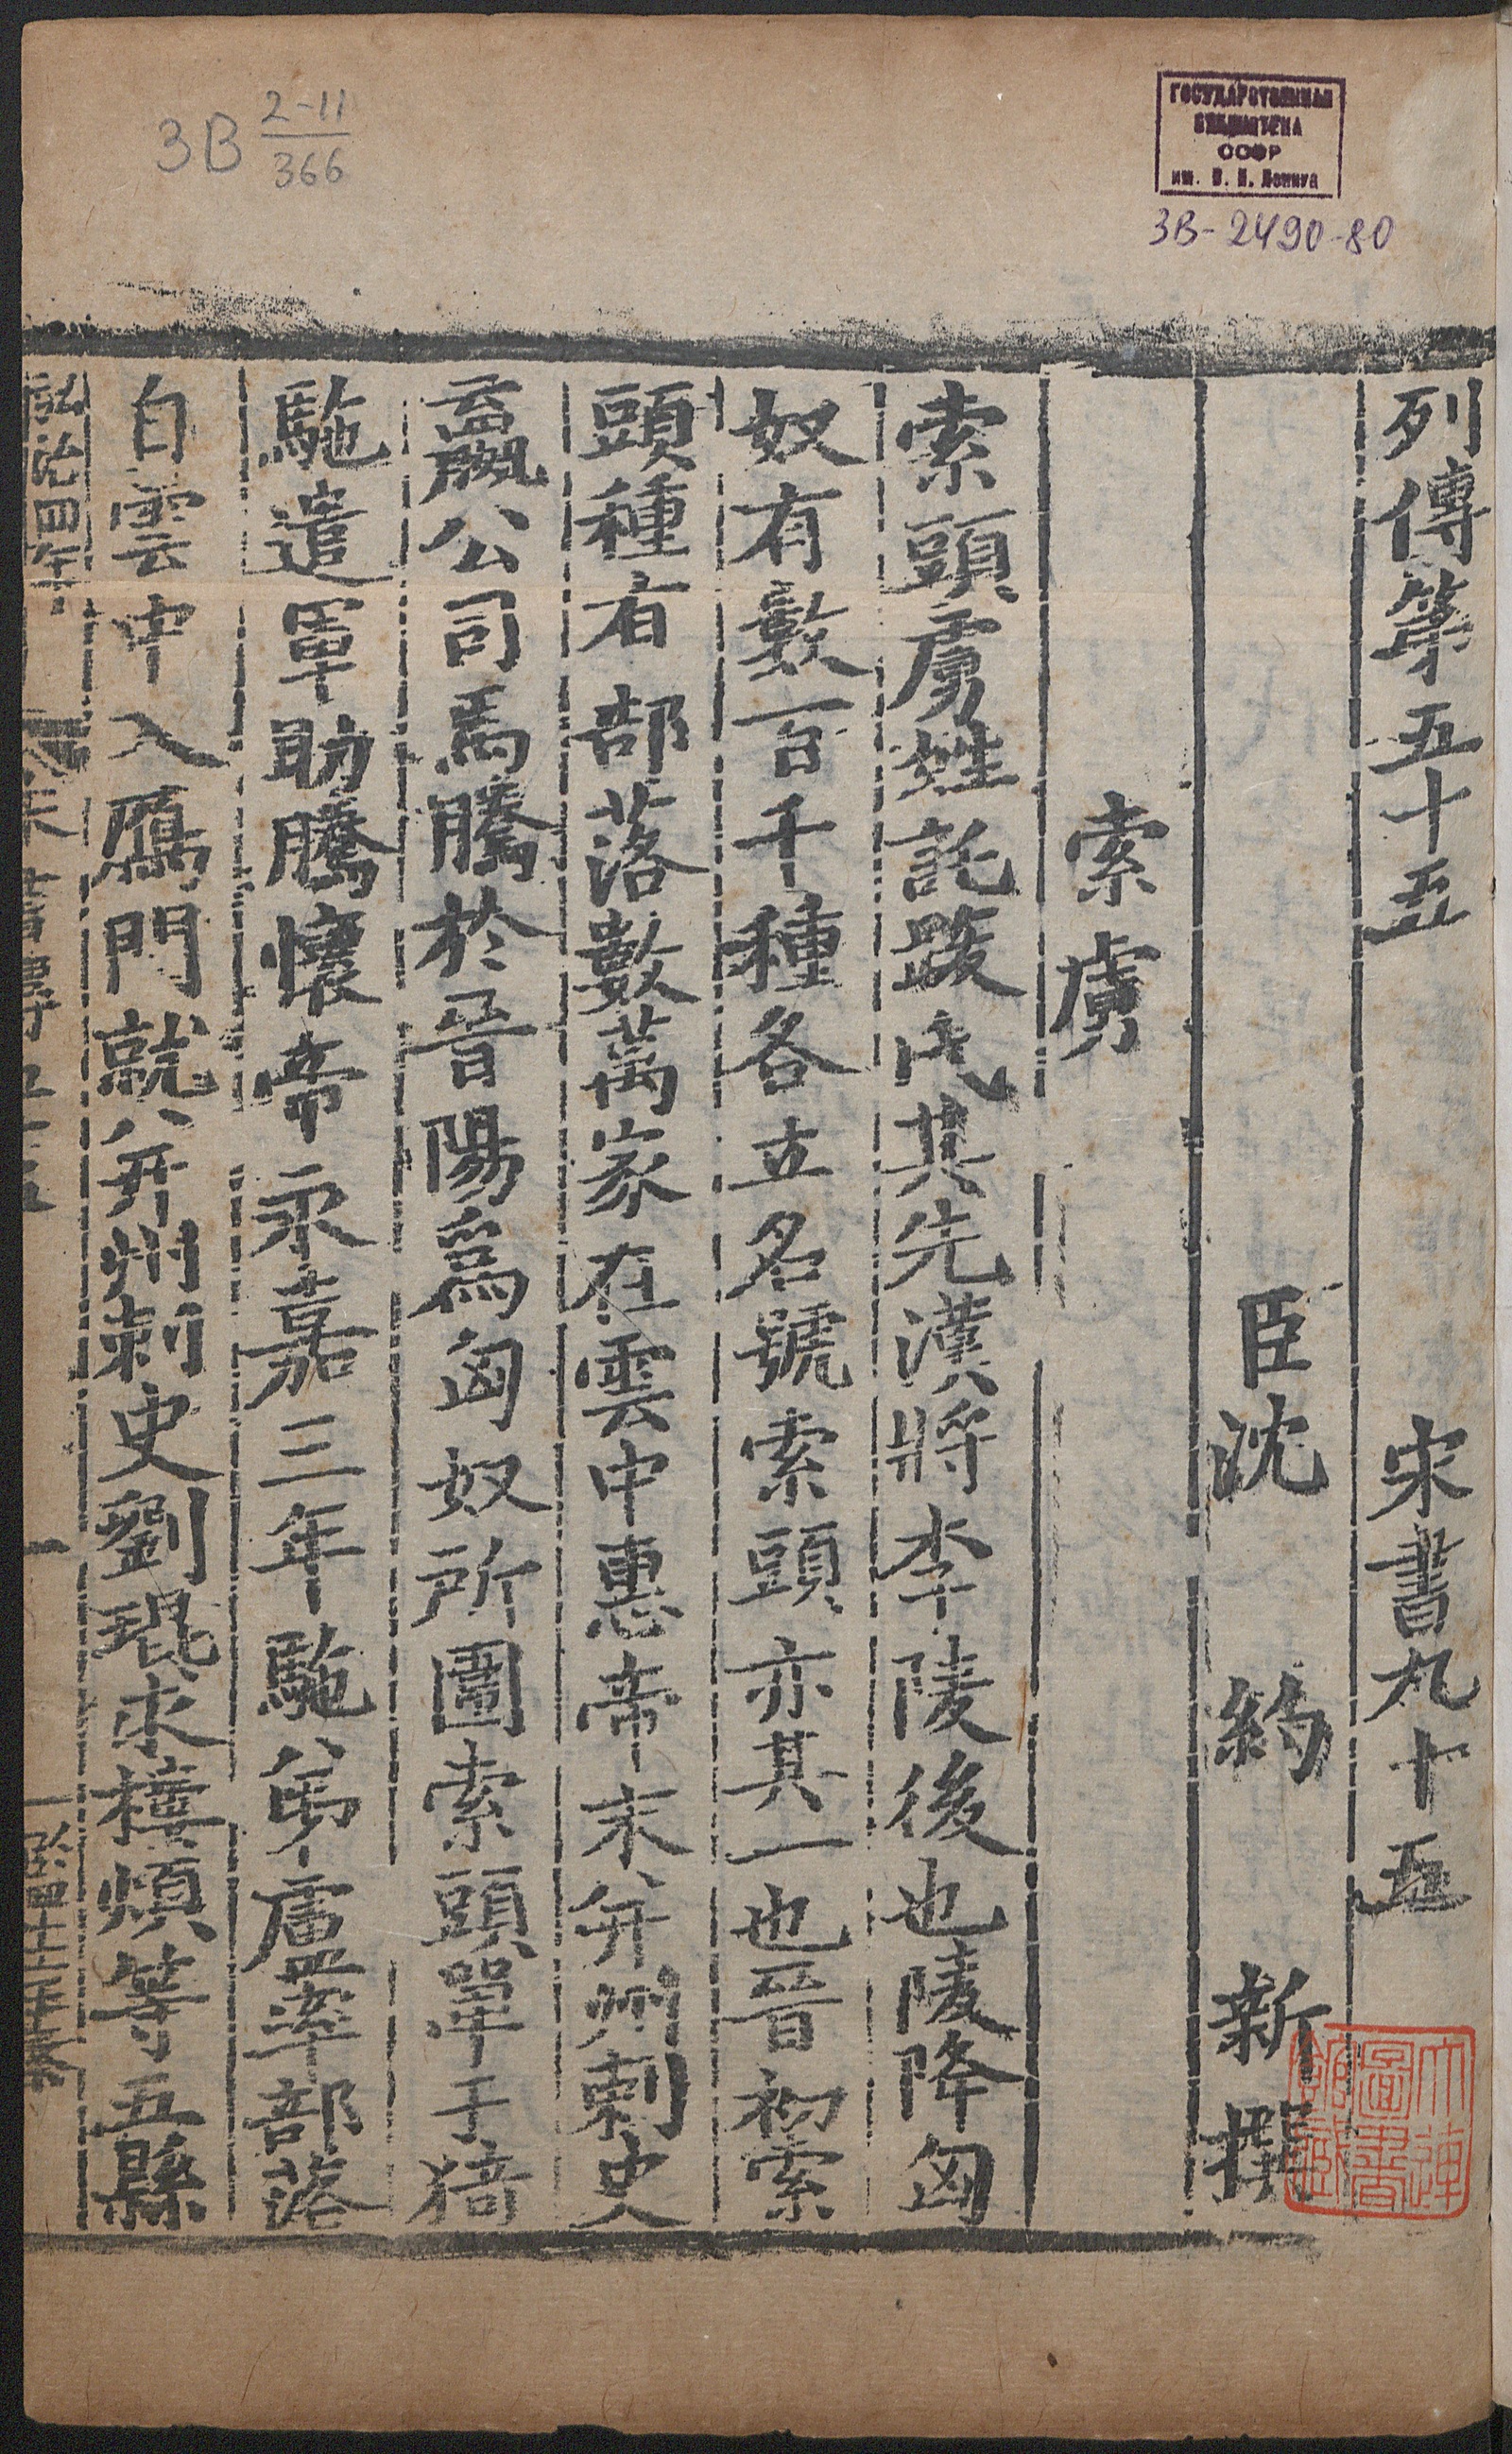 ЗВ 2-11
366
ГОСУДАРСТВЕННАЯ
БИБЛИОТЕКА
СССР
им. В. И. Ленина
ЗВ-2490-80
列傳第五十五　宋書九十五
臣沈約新撰
索虜
索頭虜姓託跋氏其先漢將李陵後也陵降匈
奴有數百千種各立名號索頭亦其一也晉初索
頭種有部落數萬家在雲中惠帝末并州刺史
東嬴公司馬騰於晉陽爲匈奴所圍索頭單于猗
馳遣軍助騰懷帝永嘉三年馳弟盧率部落
自雲中入鴈門就并州刺史劉琨求樓煩等五縣
弘治四年
宋書傳五十五
一
大連圖書館藏